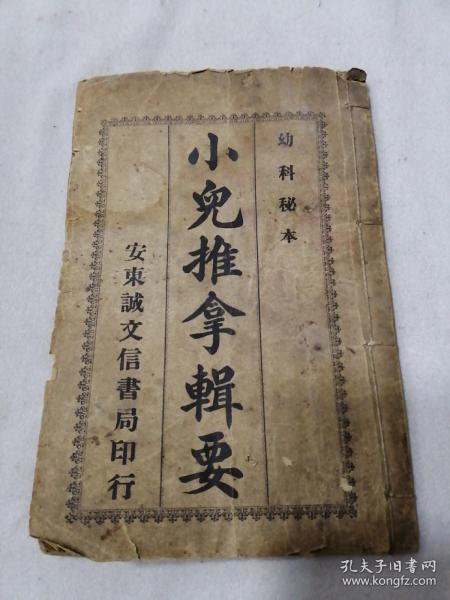 幼科秘本
小兒推拿輯要
安東誠文信書局印行
孔夫子旧书网
www.kongfz.com